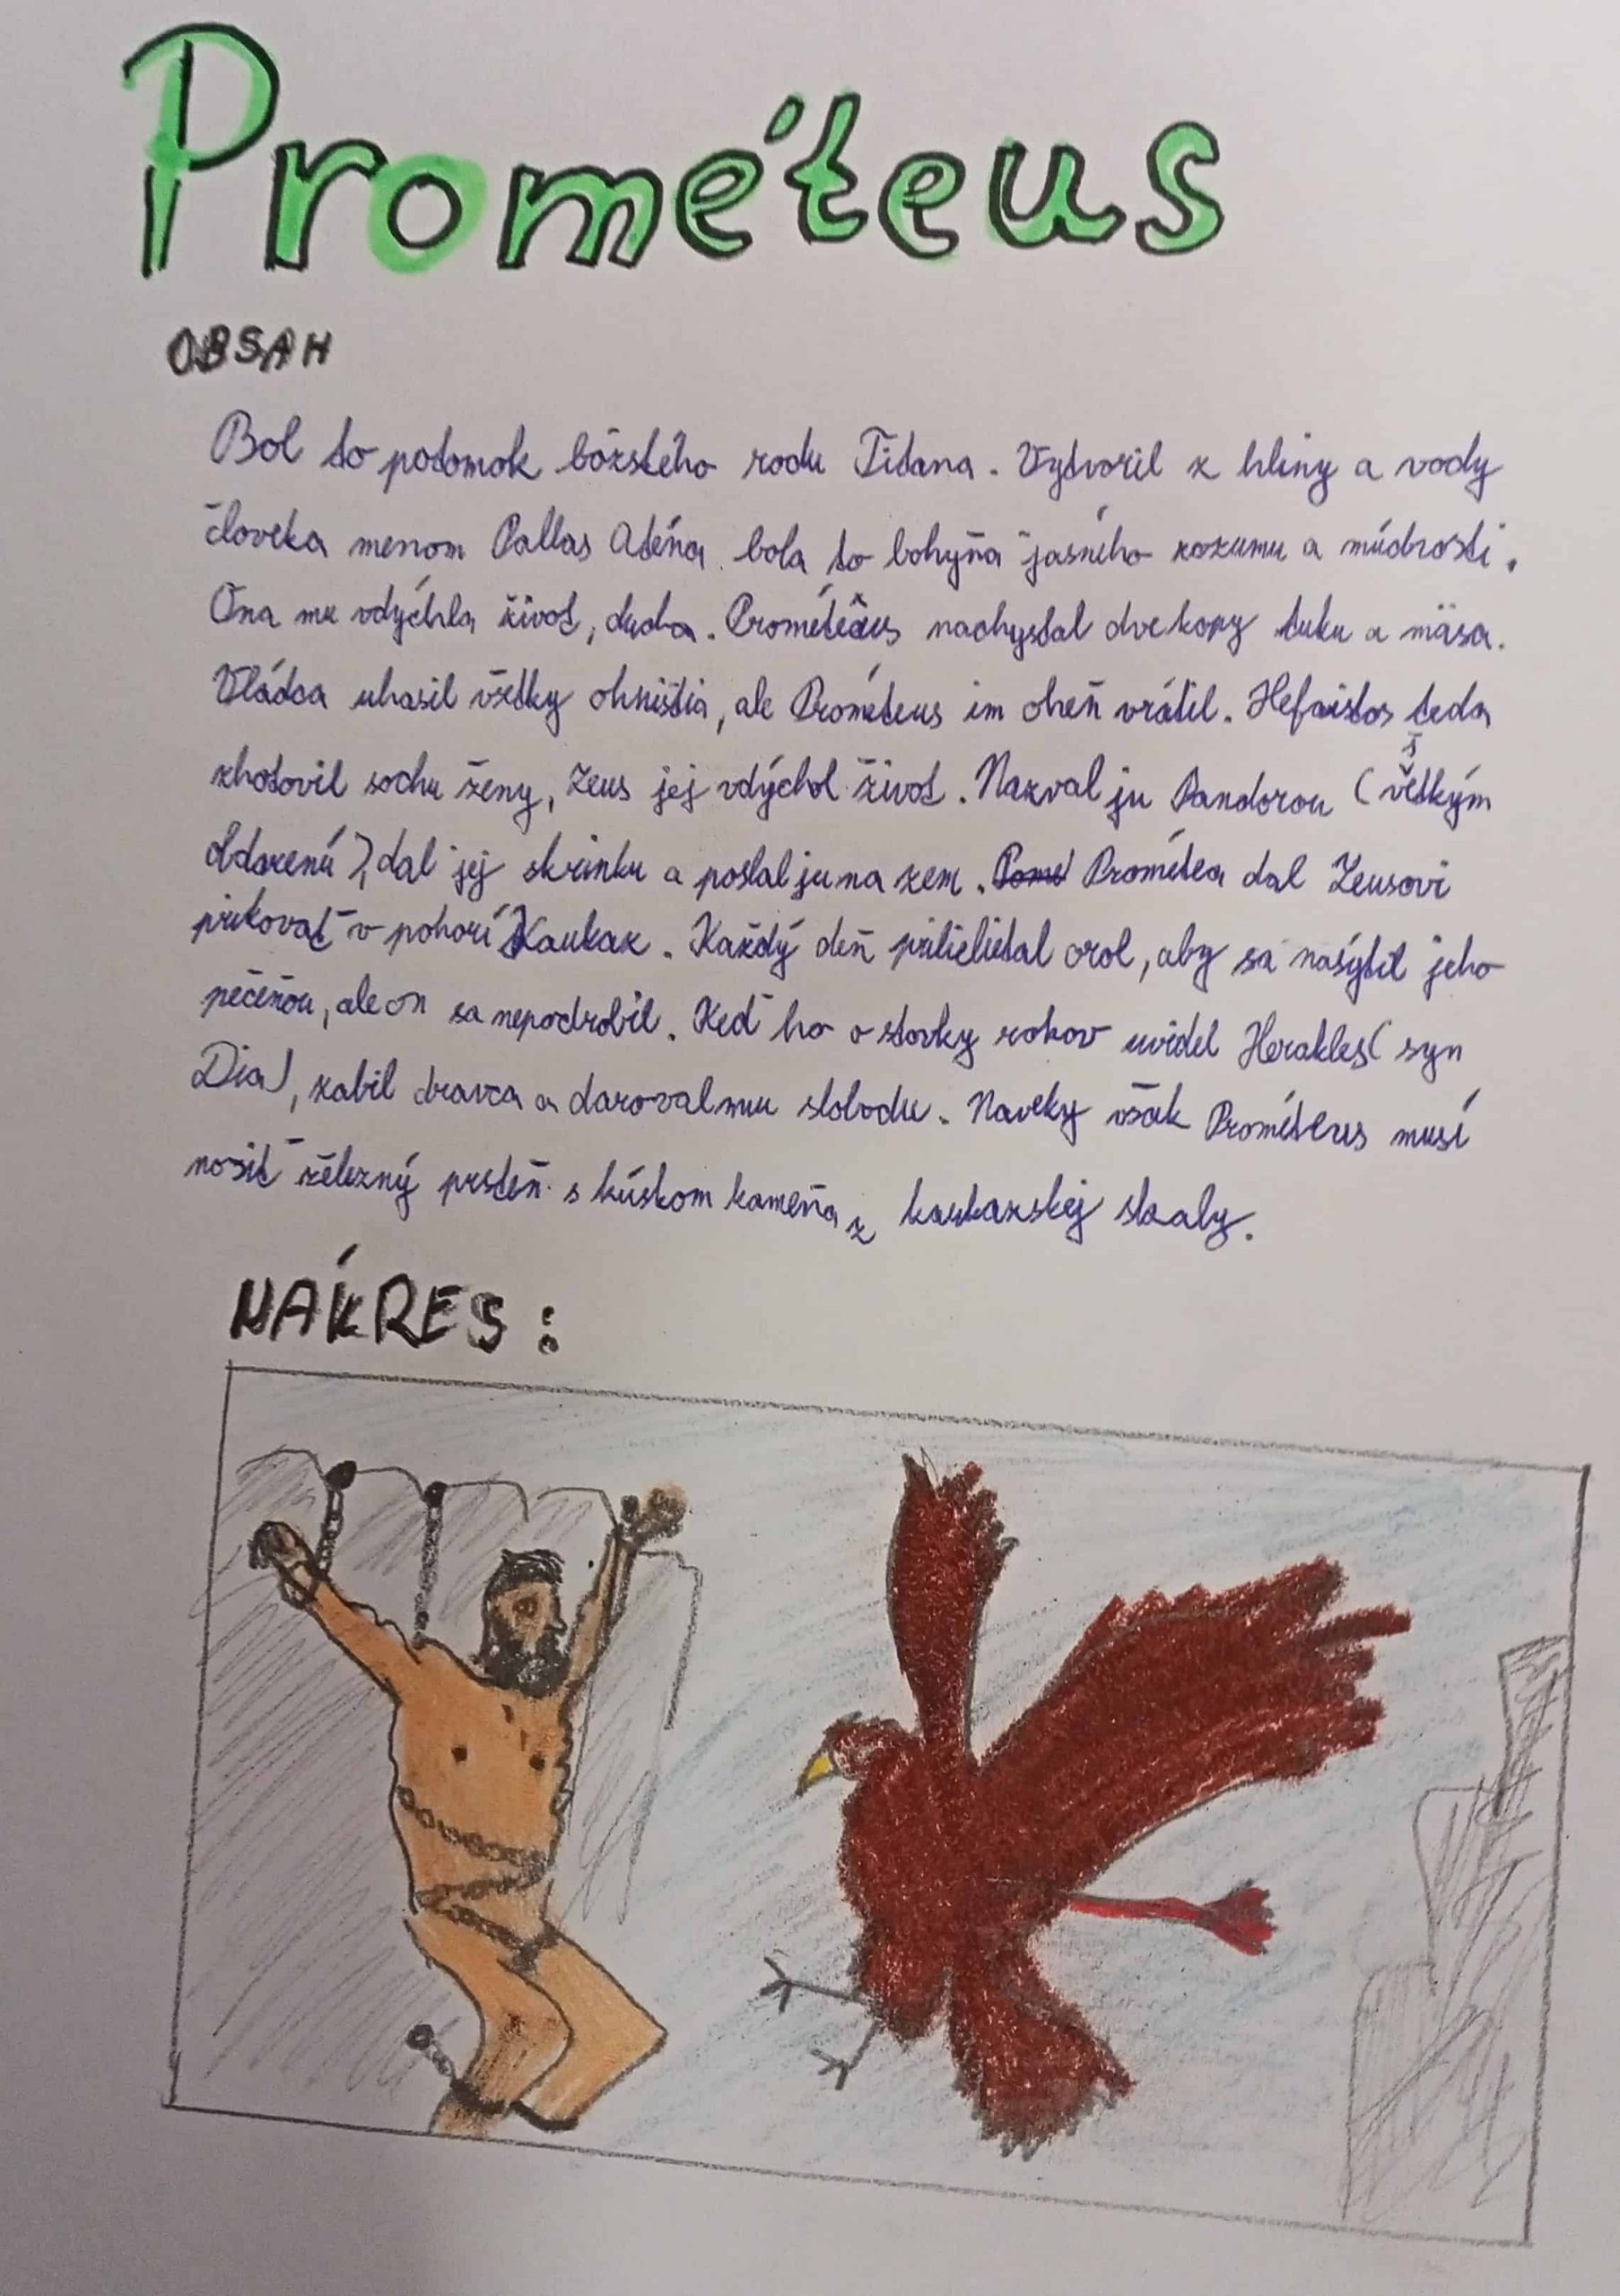 Prométeus
OBSAH
Bol to potomok bôzskeho rodu Titana. Vytvoril z hliny a vody
človeka menom Pallas Aténa. bola to bohyňa jasného rozumu a múdrosti.
Ona mu vdýchla život, ducha. Prométeus nachystal dve kopy tuku a mäsa.
Vládca uhasil všetky ohništia, ale Prométeus im oheň vrátil. Hefaistos teda
zhotovil sochu ženy, Zeus jej vdýchol život. Nazval ju Pandorou (všetkým
obdarenú), dal jej skrinku a poslal ju na zem. Prométea dal Zeusovi
prikovať v pohorí Kaukaz. Každý deň prilielietal orol, aby sa nasýtil jeho
pečeňou, ale on sa nepodrobil. Keď ho o stovky rokov uvidel Herakles( syn
Dia), zabil dravca a daroval mu slobodu. Naveky však Prométeus musí
nosiť železný prsteň s kúskom kameňa z kaukazskej skaly.
NÁKRES: